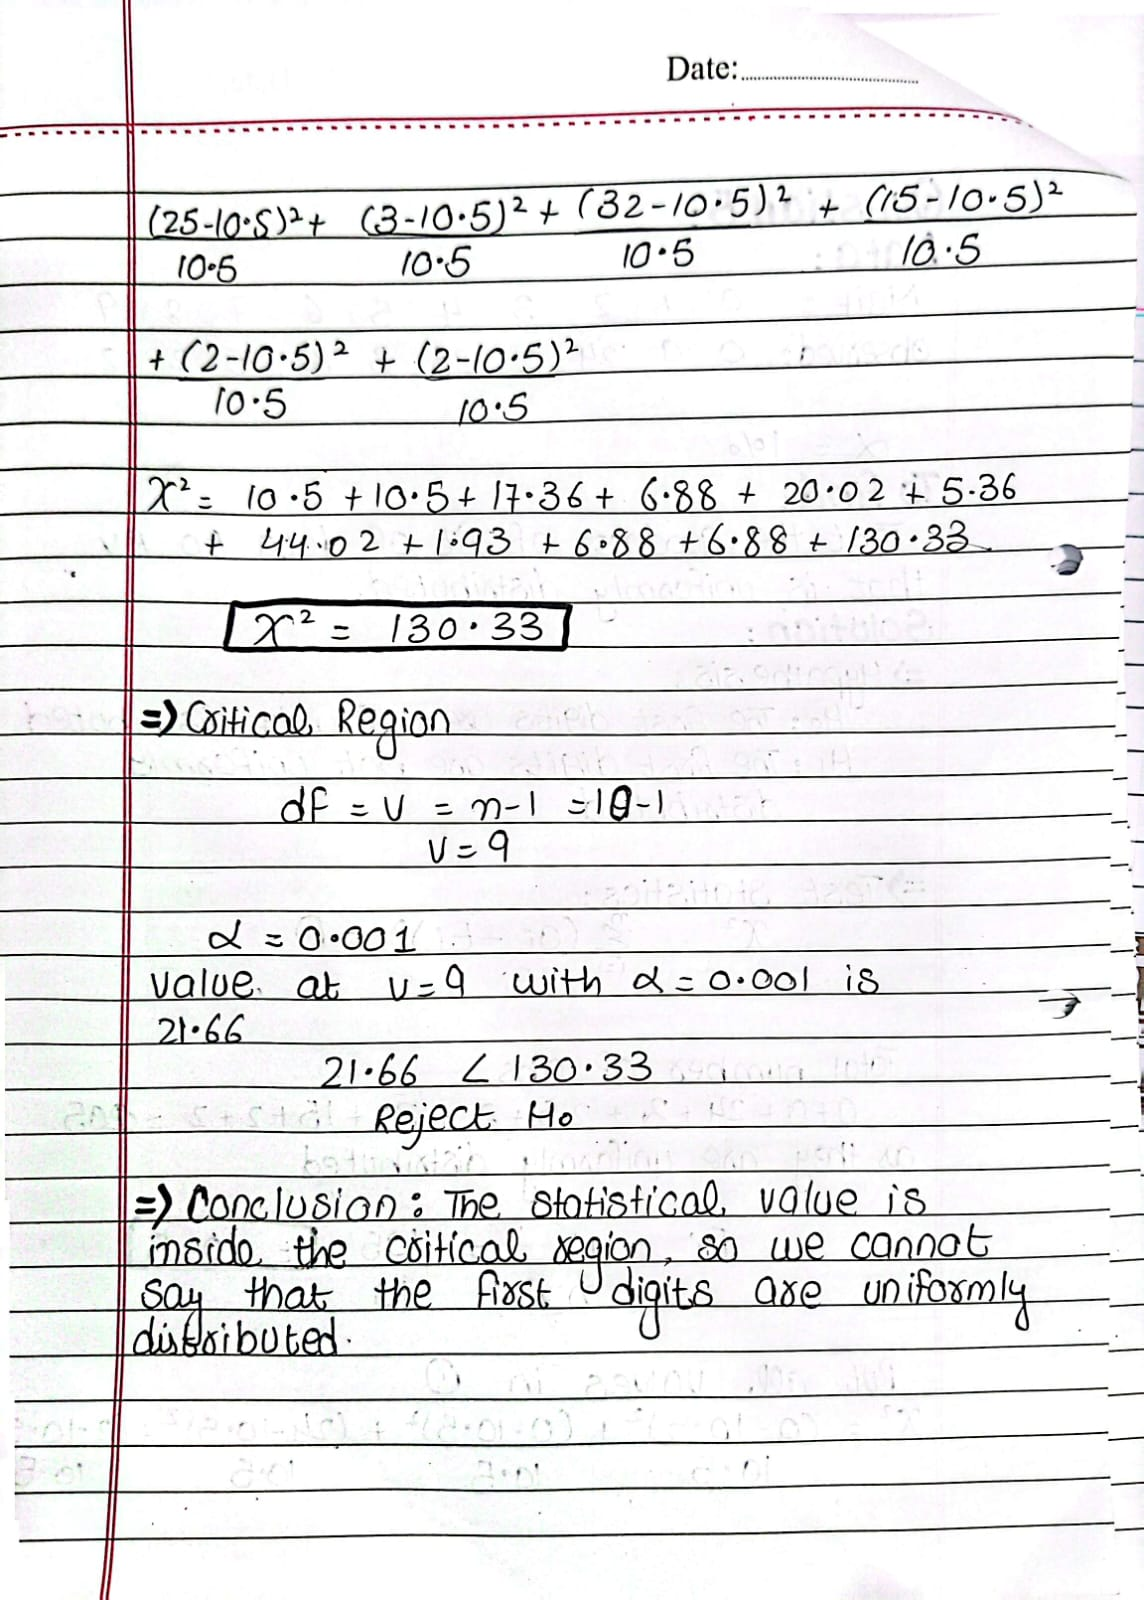 Date:
(25-10.5)²+ (3-10.5)² + (32-10.5)² + (15-10.5)²
10.5 10.5 10.5 10.5
+ (2-10.5)² + (2-10.5)²
10.5 10.5
X² = 10.5 + 10.5 + 17.36 + 6.88 + 20.02 + 5.36
+ 44.02 + 1.93 + 6.88 + 6.88 + 130.33
X² = 130.33
=> Critical Region
df = v = n-1 = 10-1
v = 9
α = 0.001
value at v=9 with α = 0.001 is
21.66
21.66 < 130.33
Reject Ho
=> Conclusion: The statistical value is
inside the critical region, so we cannot
say that the first digits are uniformly
distributed.